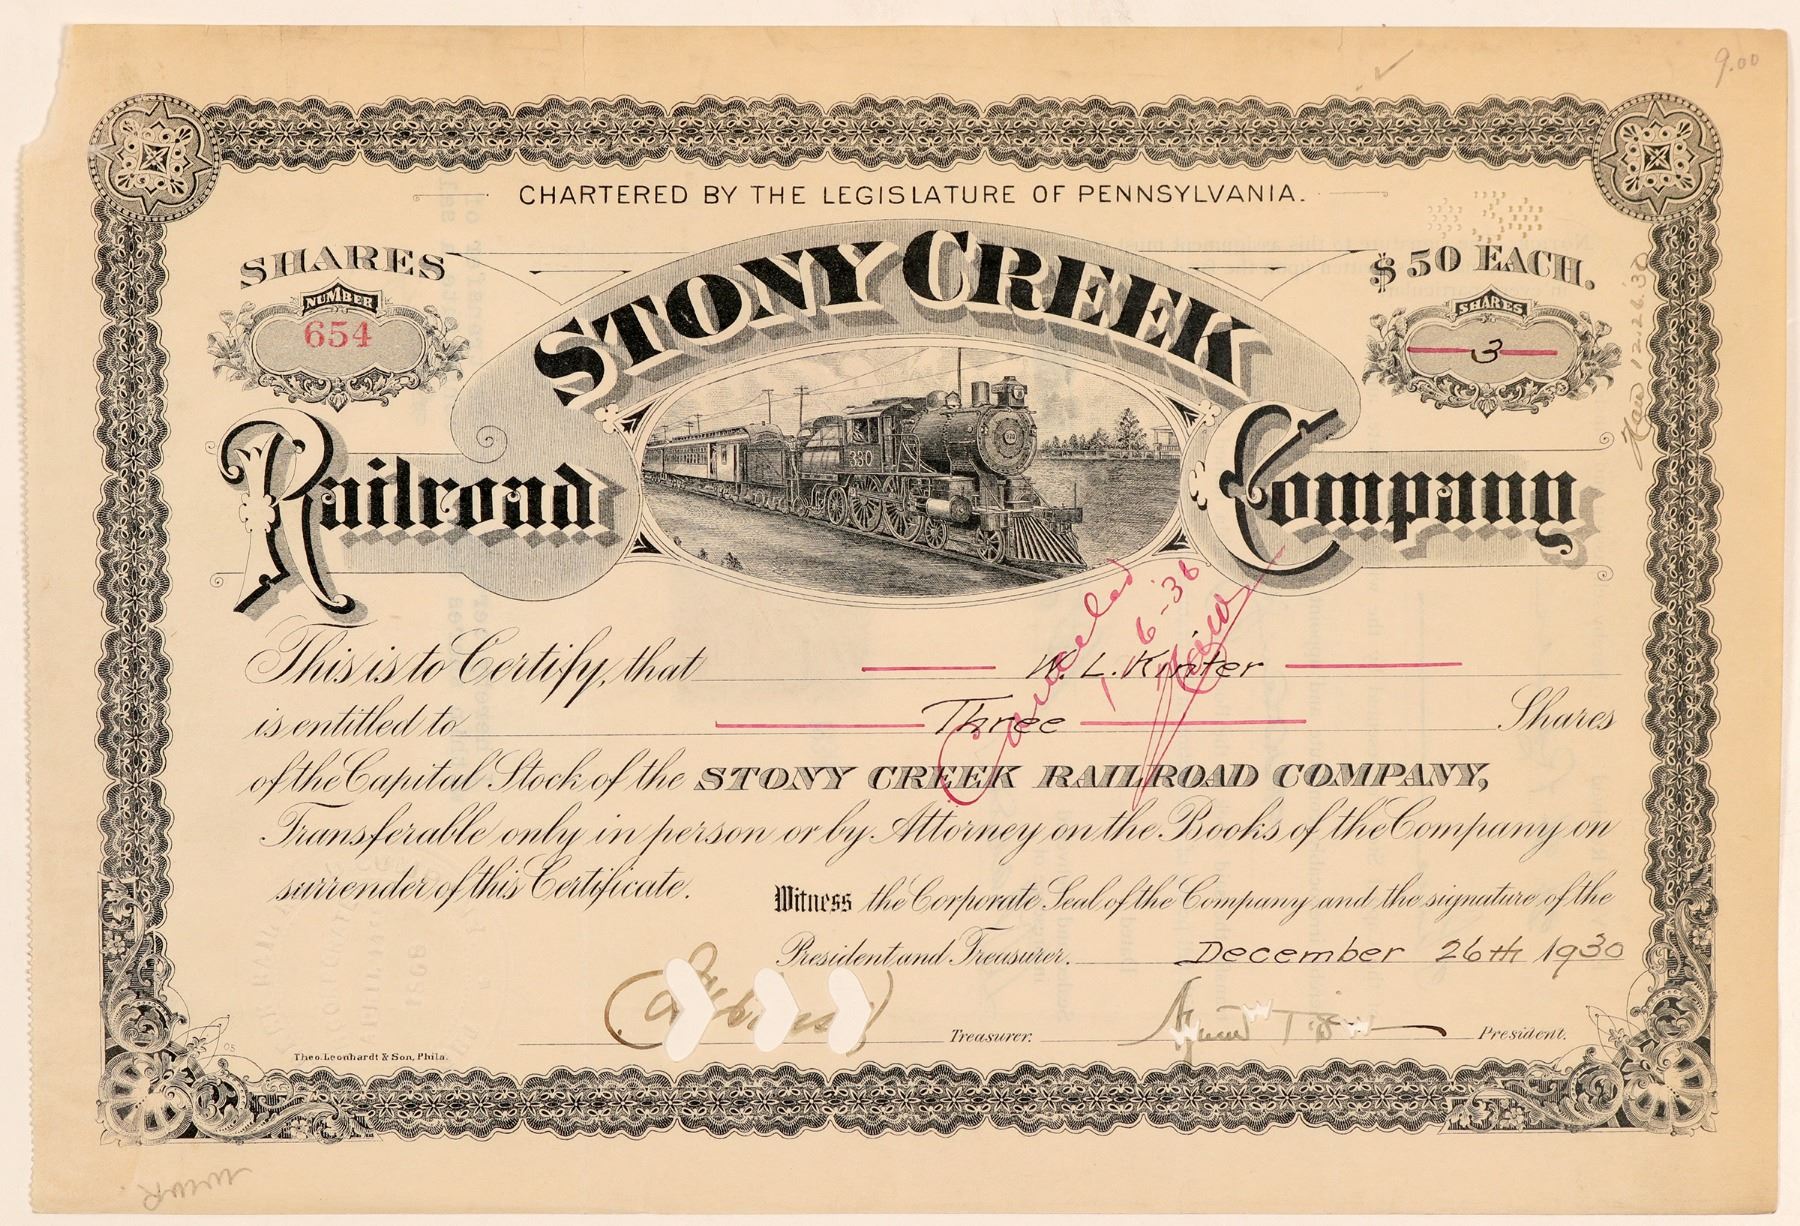 9.00
CHARTERED BY THE LEGISLATURE OF PENNSYLVANIA.
SHARES
$50 EACH.
NUMBER
654
SHARES
3
12.26.30
STONY CREEK
Railroad Company
330
Cancelled
1-6-36
This is to Certify, that W. L. Kinter
is entitled to Three Shares
of the Capital Stock of the STONY CREEK RAILROAD COMPANY,
Transferable only in person or by Attorney on the Books of the Company on
surrender of this Certificate.
Witness the Corporate Seal of the Company and the signature of the
President and Treasurer. December 26th 1930
Treasurer.
President.
Theo. Leonhardt & Son, Phila.